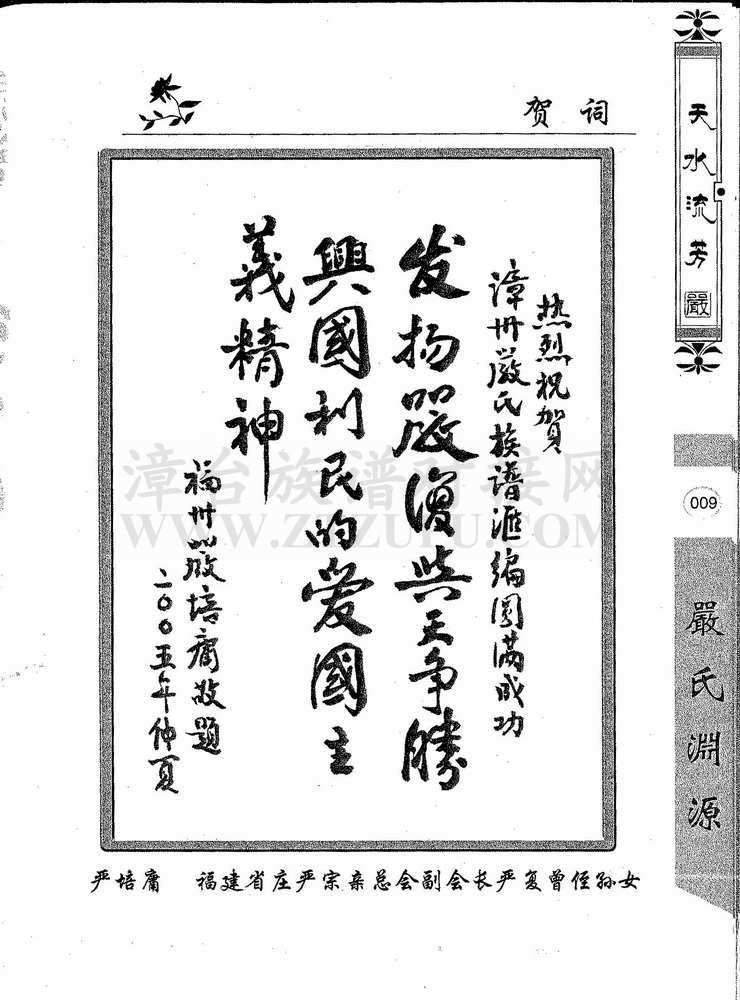 贺词
热烈祝賀
漳州嚴氏族譜滙编圆满成功
发扬嚴復與天争勝
興國利民的爱國主
義精神
福州嚴培庸敬題
二〇〇五年仲夏
严培庸 福建省庄严宗亲总会副会长严复曾侄孙女
天水流芳
嚴
009
嚴氏淵源
漳台族谱对接网
WWW.ZTZUPU.COM